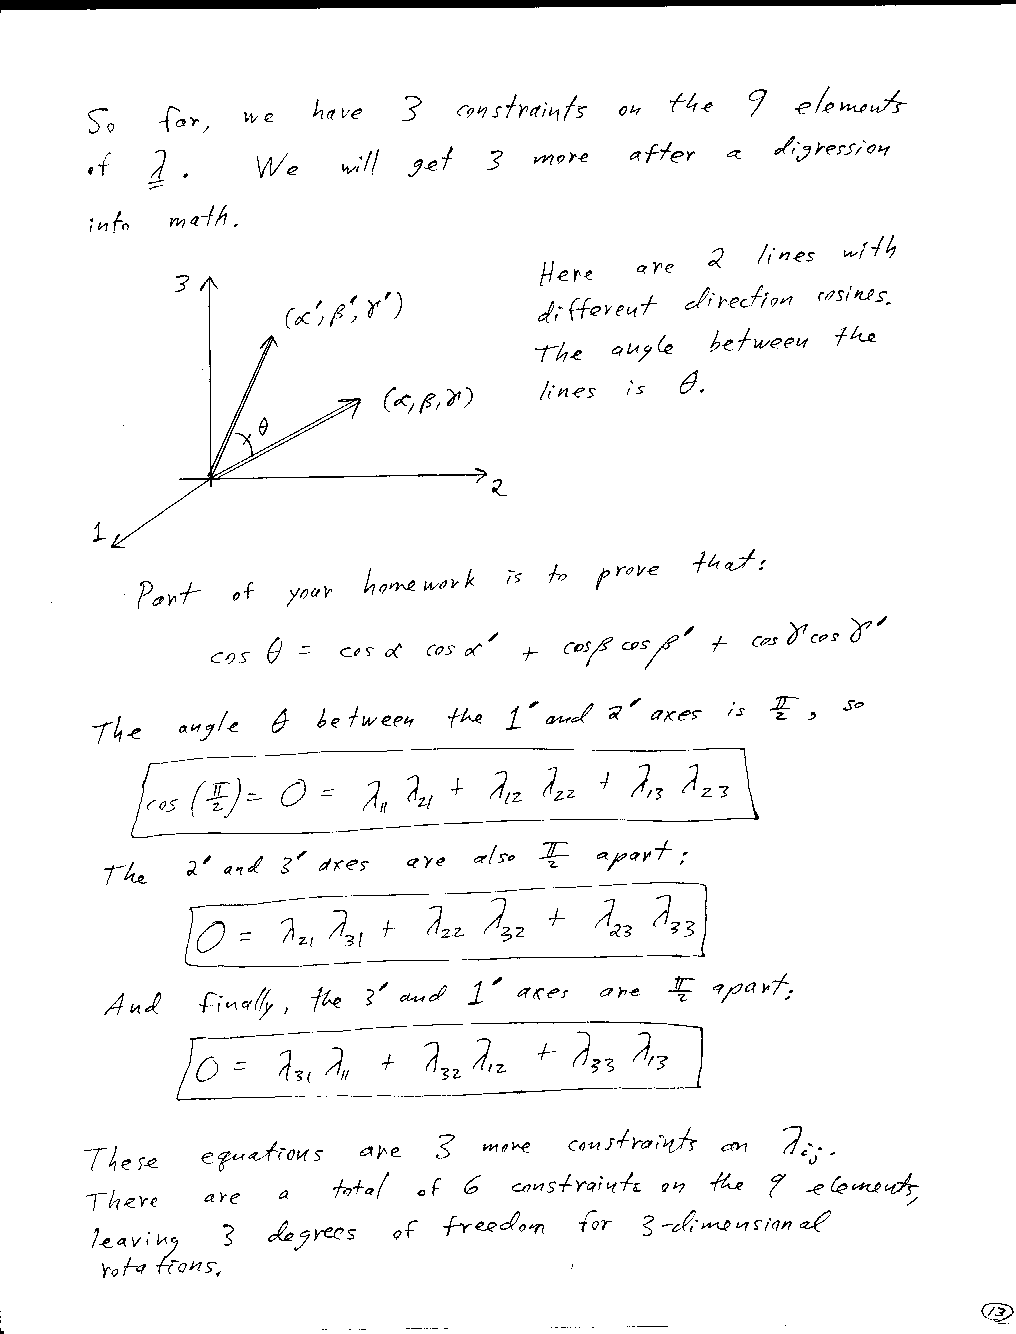 So far, we have 3 constraints on the 9 elements
of λ. We will get 3 more after a digression
into math.
3
(α', β', γ')
Here are 2 lines with
different direction cosines.
The angle between the
lines is θ.
(α, β, γ)
θ
2
1
Part of your homework is to prove that:
cos θ = cos α cos α' + cos β cos β' + cos γ cos γ'
The angle θ between the 1' and 2' axes is π/2, so
cos (π/2) = 0 = λ₁₁ λ₂₁ + λ₁₂ λ₂₂ + λ₁₃ λ₂₃
The 2' and 3' axes are also π/2 apart:
0 = λ₂₁ λ₃₁ + λ₂₂ λ₃₂ + λ₂₃ λ₃₃
And finally, the 3' and 1' axes are π/2 apart:
0 = λ₃₁ λ₁₁ + λ₃₂ λ₁₂ + λ₃₃ λ₁₃
These equations are 3 more constraints on λij.
There are a total of 6 constraints on the 9 elements,
leaving 3 degrees of freedom for 3-dimensional
rotations.
13